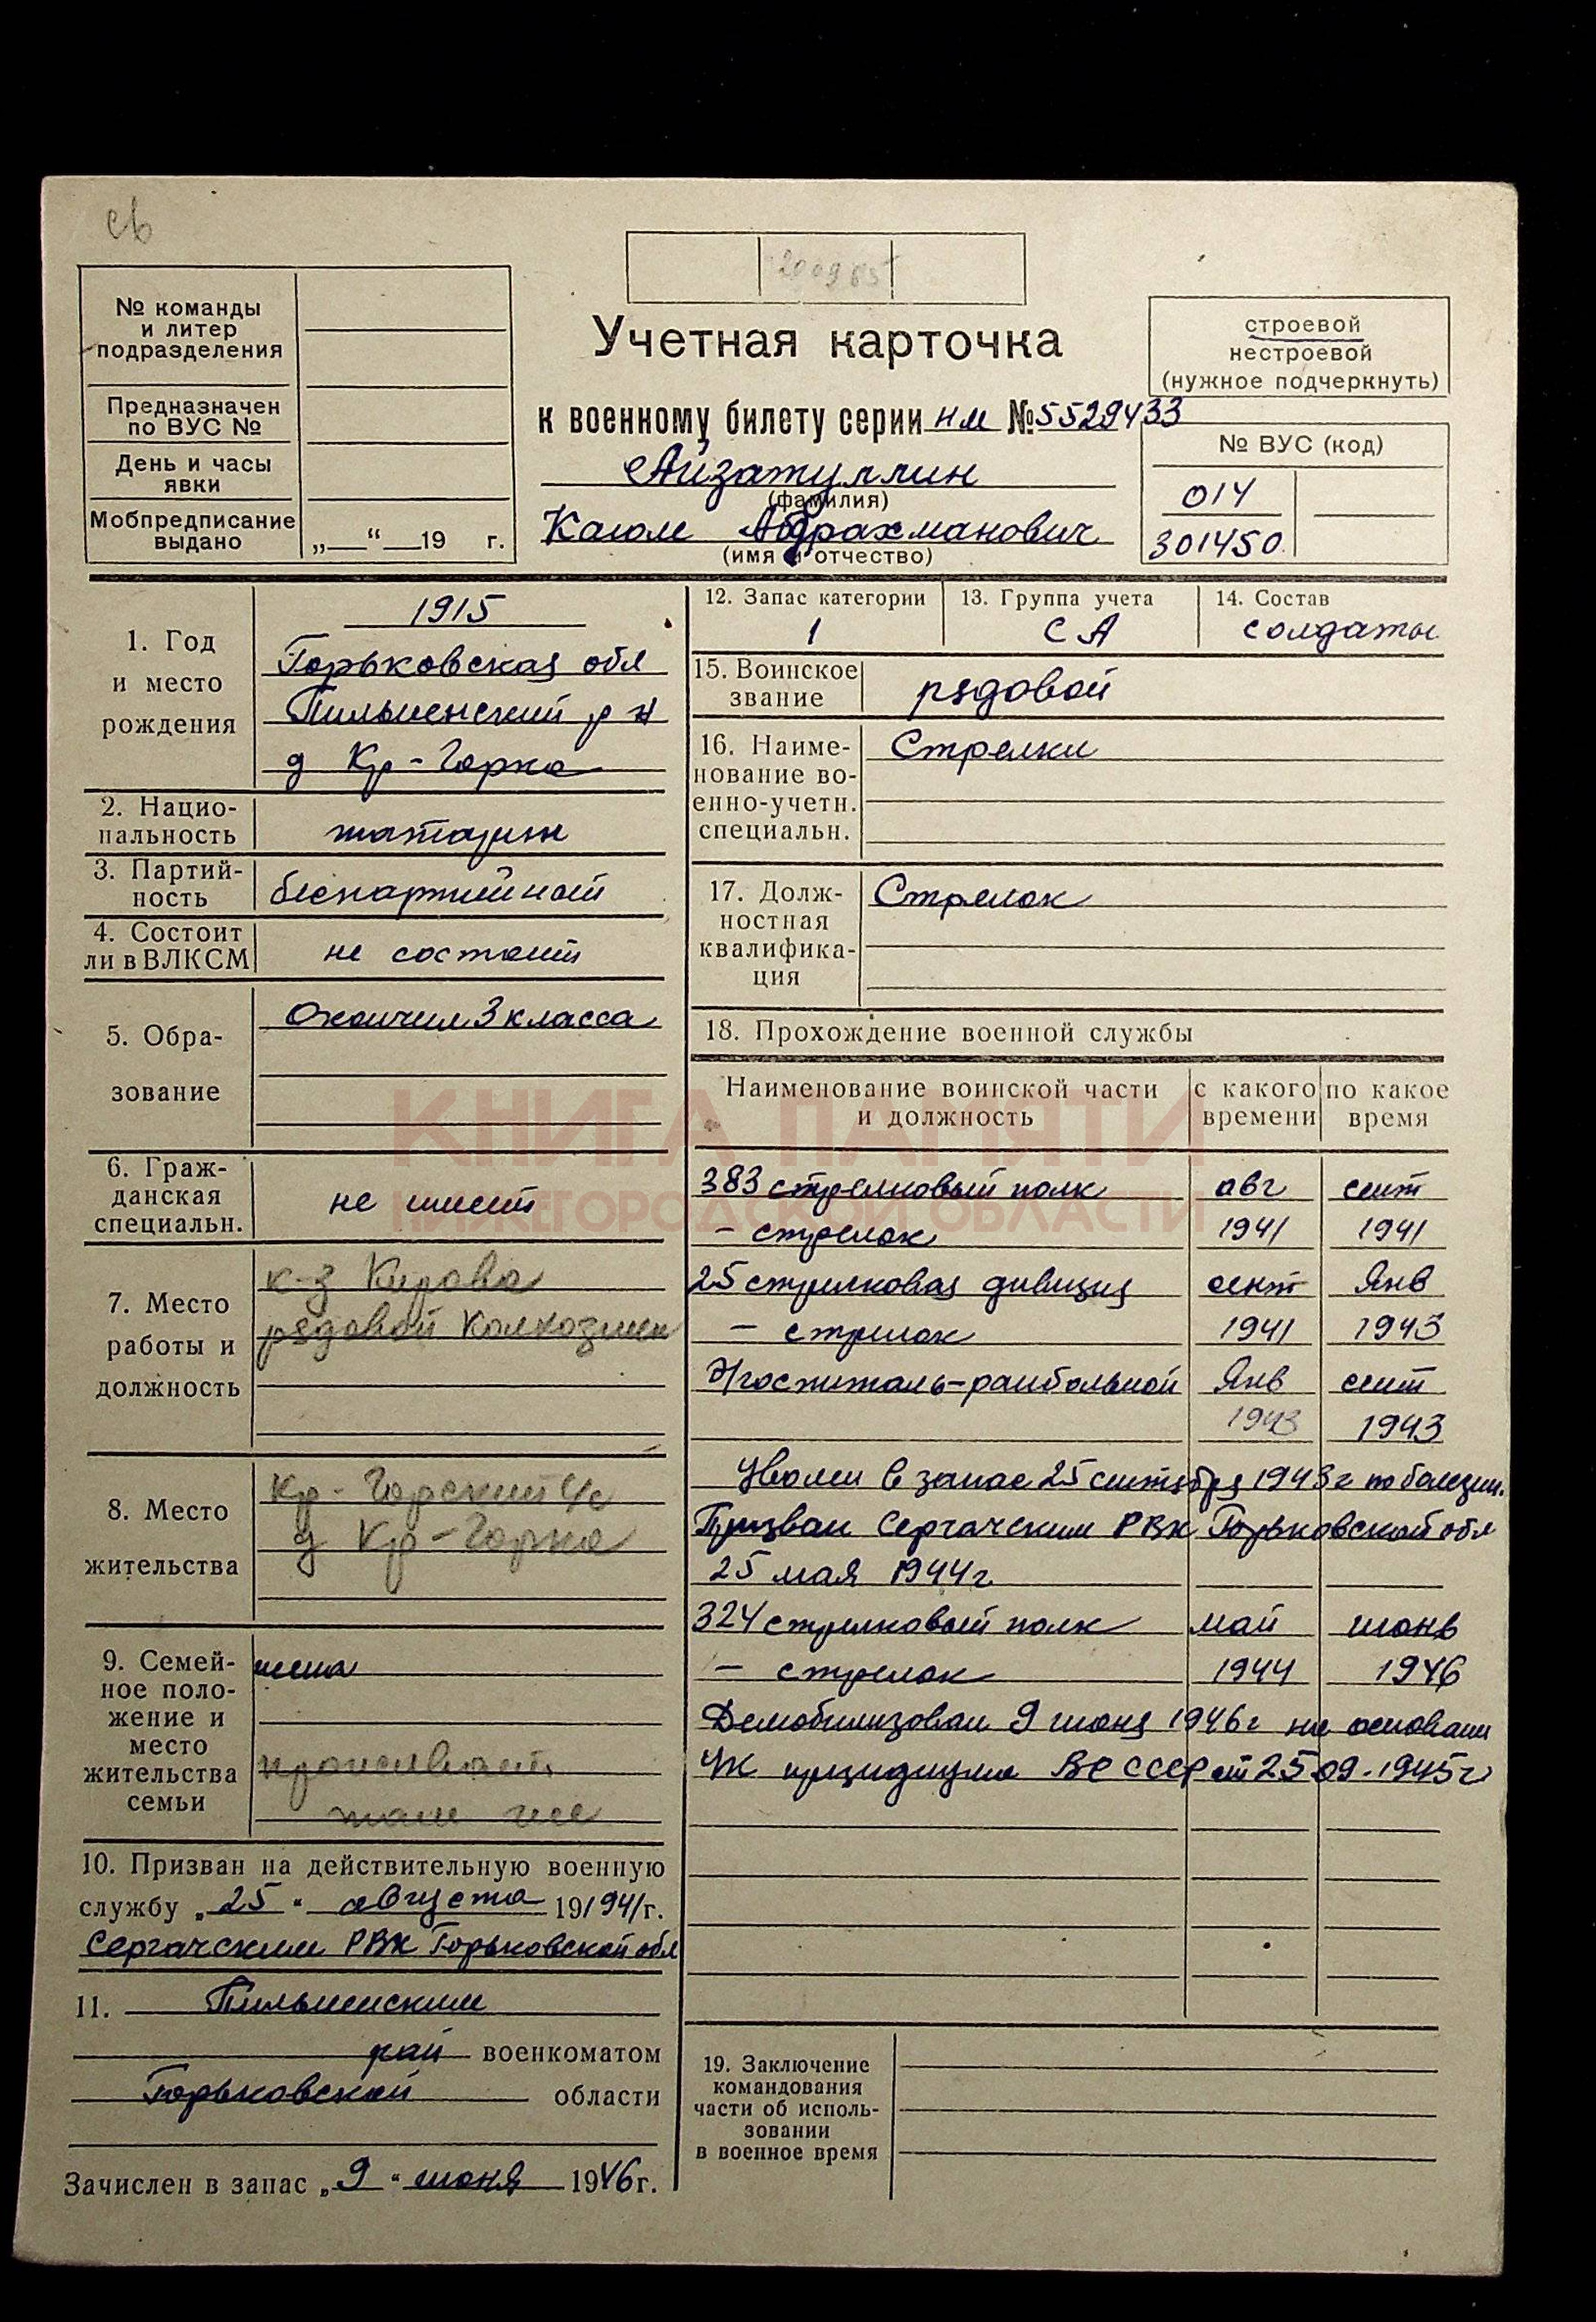 св
200985
№ команды
и литер
подразделения
Предназначен
по ВУС №
День и часы
явки
Мобпредписание
выдано
„ “ 19 г.
Учетная карточка
к военному билету серии НМ № 5529433
Айзатуллин
(фамилия)
Каюм Абдрахманович
(имя и отчество)
строевой
нестроевой
(нужное подчеркнуть)
№ ВУС (код)
014
301450
1. Год
и место
рождения
1915
Горьковская обл
Пильненский р н
д Кр-Горка
2. Нацио-
нальность
татарин
3. Партий-
ность
беспартийный
4. Состоит
ли в ВЛКСМ
не состоит
5. Обра-
зование
Окончил 3 класса
6. Граж-
данская
специальн.
не имеет
7. Место
работы и
должность
к-з Кирова
рядовой колхозник
8. Место
жительства
Кр-Горский с/с
д Кр-Горка
9. Семей-
ное поло-
жение и
место
жительства
семьи
жена
проживает
там же
10. Призван на действительную военную
службу „25“ августа 19/941г.
Сергачским РВК Горьковской обл
11. Пильненским
рай военкоматом
Горьковской области
Зачислен в запас „9“ июня 1946г.
12. Запас категории
1
13. Группа учета
СА
14. Состав
солдаты
15. Воинское
звание
рядовой
16. Наиме-
нование во-
енно-учетн.
специальн.
Стрелки
17. Долж-
ностная
квалифика-
ция
Стрелок
18. Прохождение военной службы
Наименование воинской части
и должность
с какого
времени
по какое
время
383 стрелковый полк авг сент
– стрелок 1941 1941
25 стрелковая дивизия сент Янв
– стрелок 1941 1943
Э/госпиталь-ранбольной Янв сент
1943 1943
Уволен в запас 25 сентября 1943г по болезни.
Призван Сергачским РВК Горьковской обл
25 мая 1944г
324 стрелковый полк май июнь
– стрелок 1944 1946
Демобилизован 9 июня 1946г на основании
УК президиума ВС СССР от 25 09.1945г
19. Заключение
командования
части об исполь-
зовании
в военное время
КНИГА ПАМЯТИ
НИЖЕГОРОДСКОЙ ОБЛАСТИ